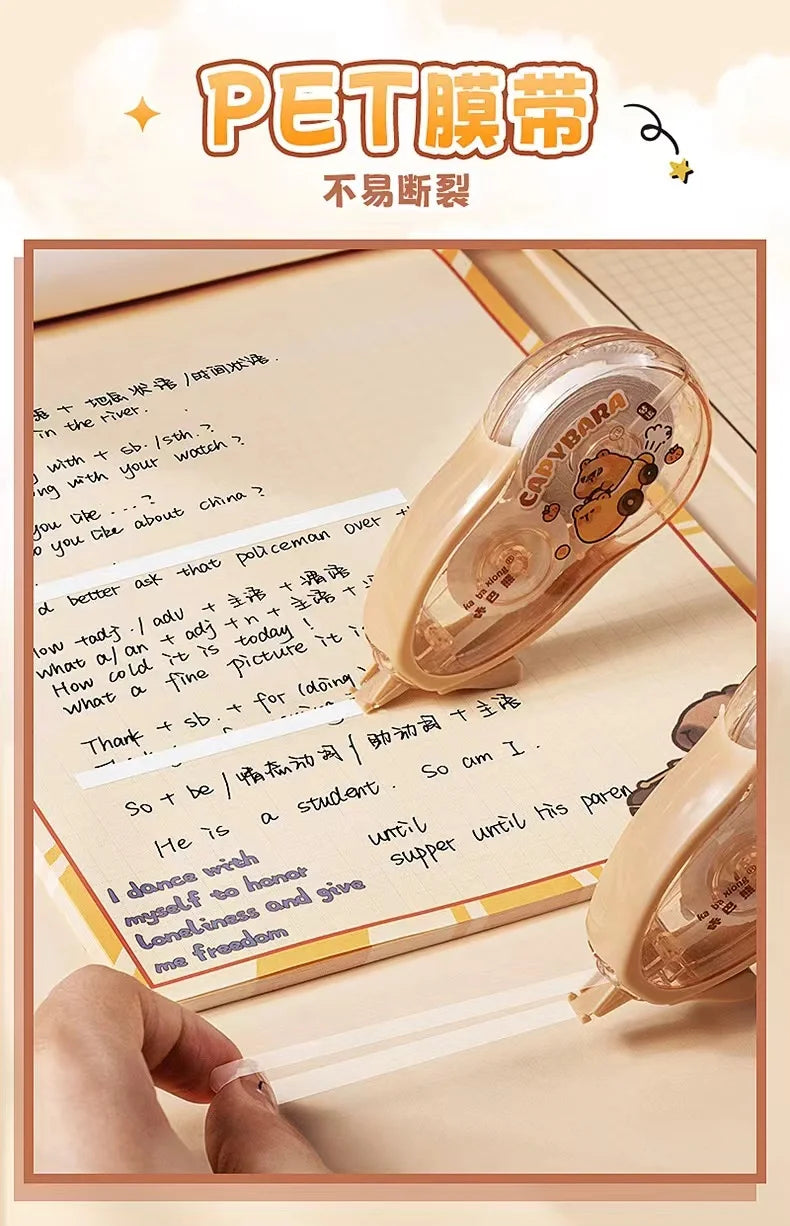 PET膜带
不易断裂
语 + 地点状语 / 时间状语.
in the river.
with + sb. / sth. ?
ng with your watch ?
you like ... ?
o you like about china ?
d better ask that policeman over
low + adj. / adv + 主语 + 谓语
what a/an + adj + n + 主语 +
How cold it is today !
what a fine picture it i
Thank + sb. + for (doing
So + be / 情态动词 / 助动词 + 主语
He is a student. So am I.
until
supper until his paren
I dance with
myself to honor
loneliness and give
me freedom
CAPYBARA
ka ba xiong
咔巴熊
ka ba xiong
咔巴熊